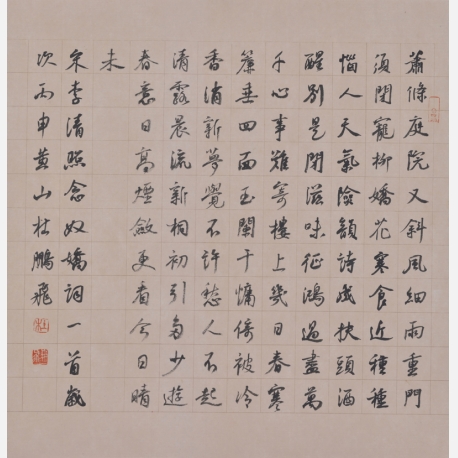 蕭條庭院又斜風細雨重門
須閉寵柳嬌花寒食近種種
惱人天氣險韻詩成扶頭酒
醒別是閒滋味征鴻過盡萬
千心事難寄樓上幾日春寒
簾垂四面玉闌干慵倚被冷
香消新夢覺不許愁人不起
清露晨流新桐初引多少遊
春意日高煙斂更看今日晴
未
宋李清照念奴嬌詞一首歲
次丙申黃山杜鵬飛